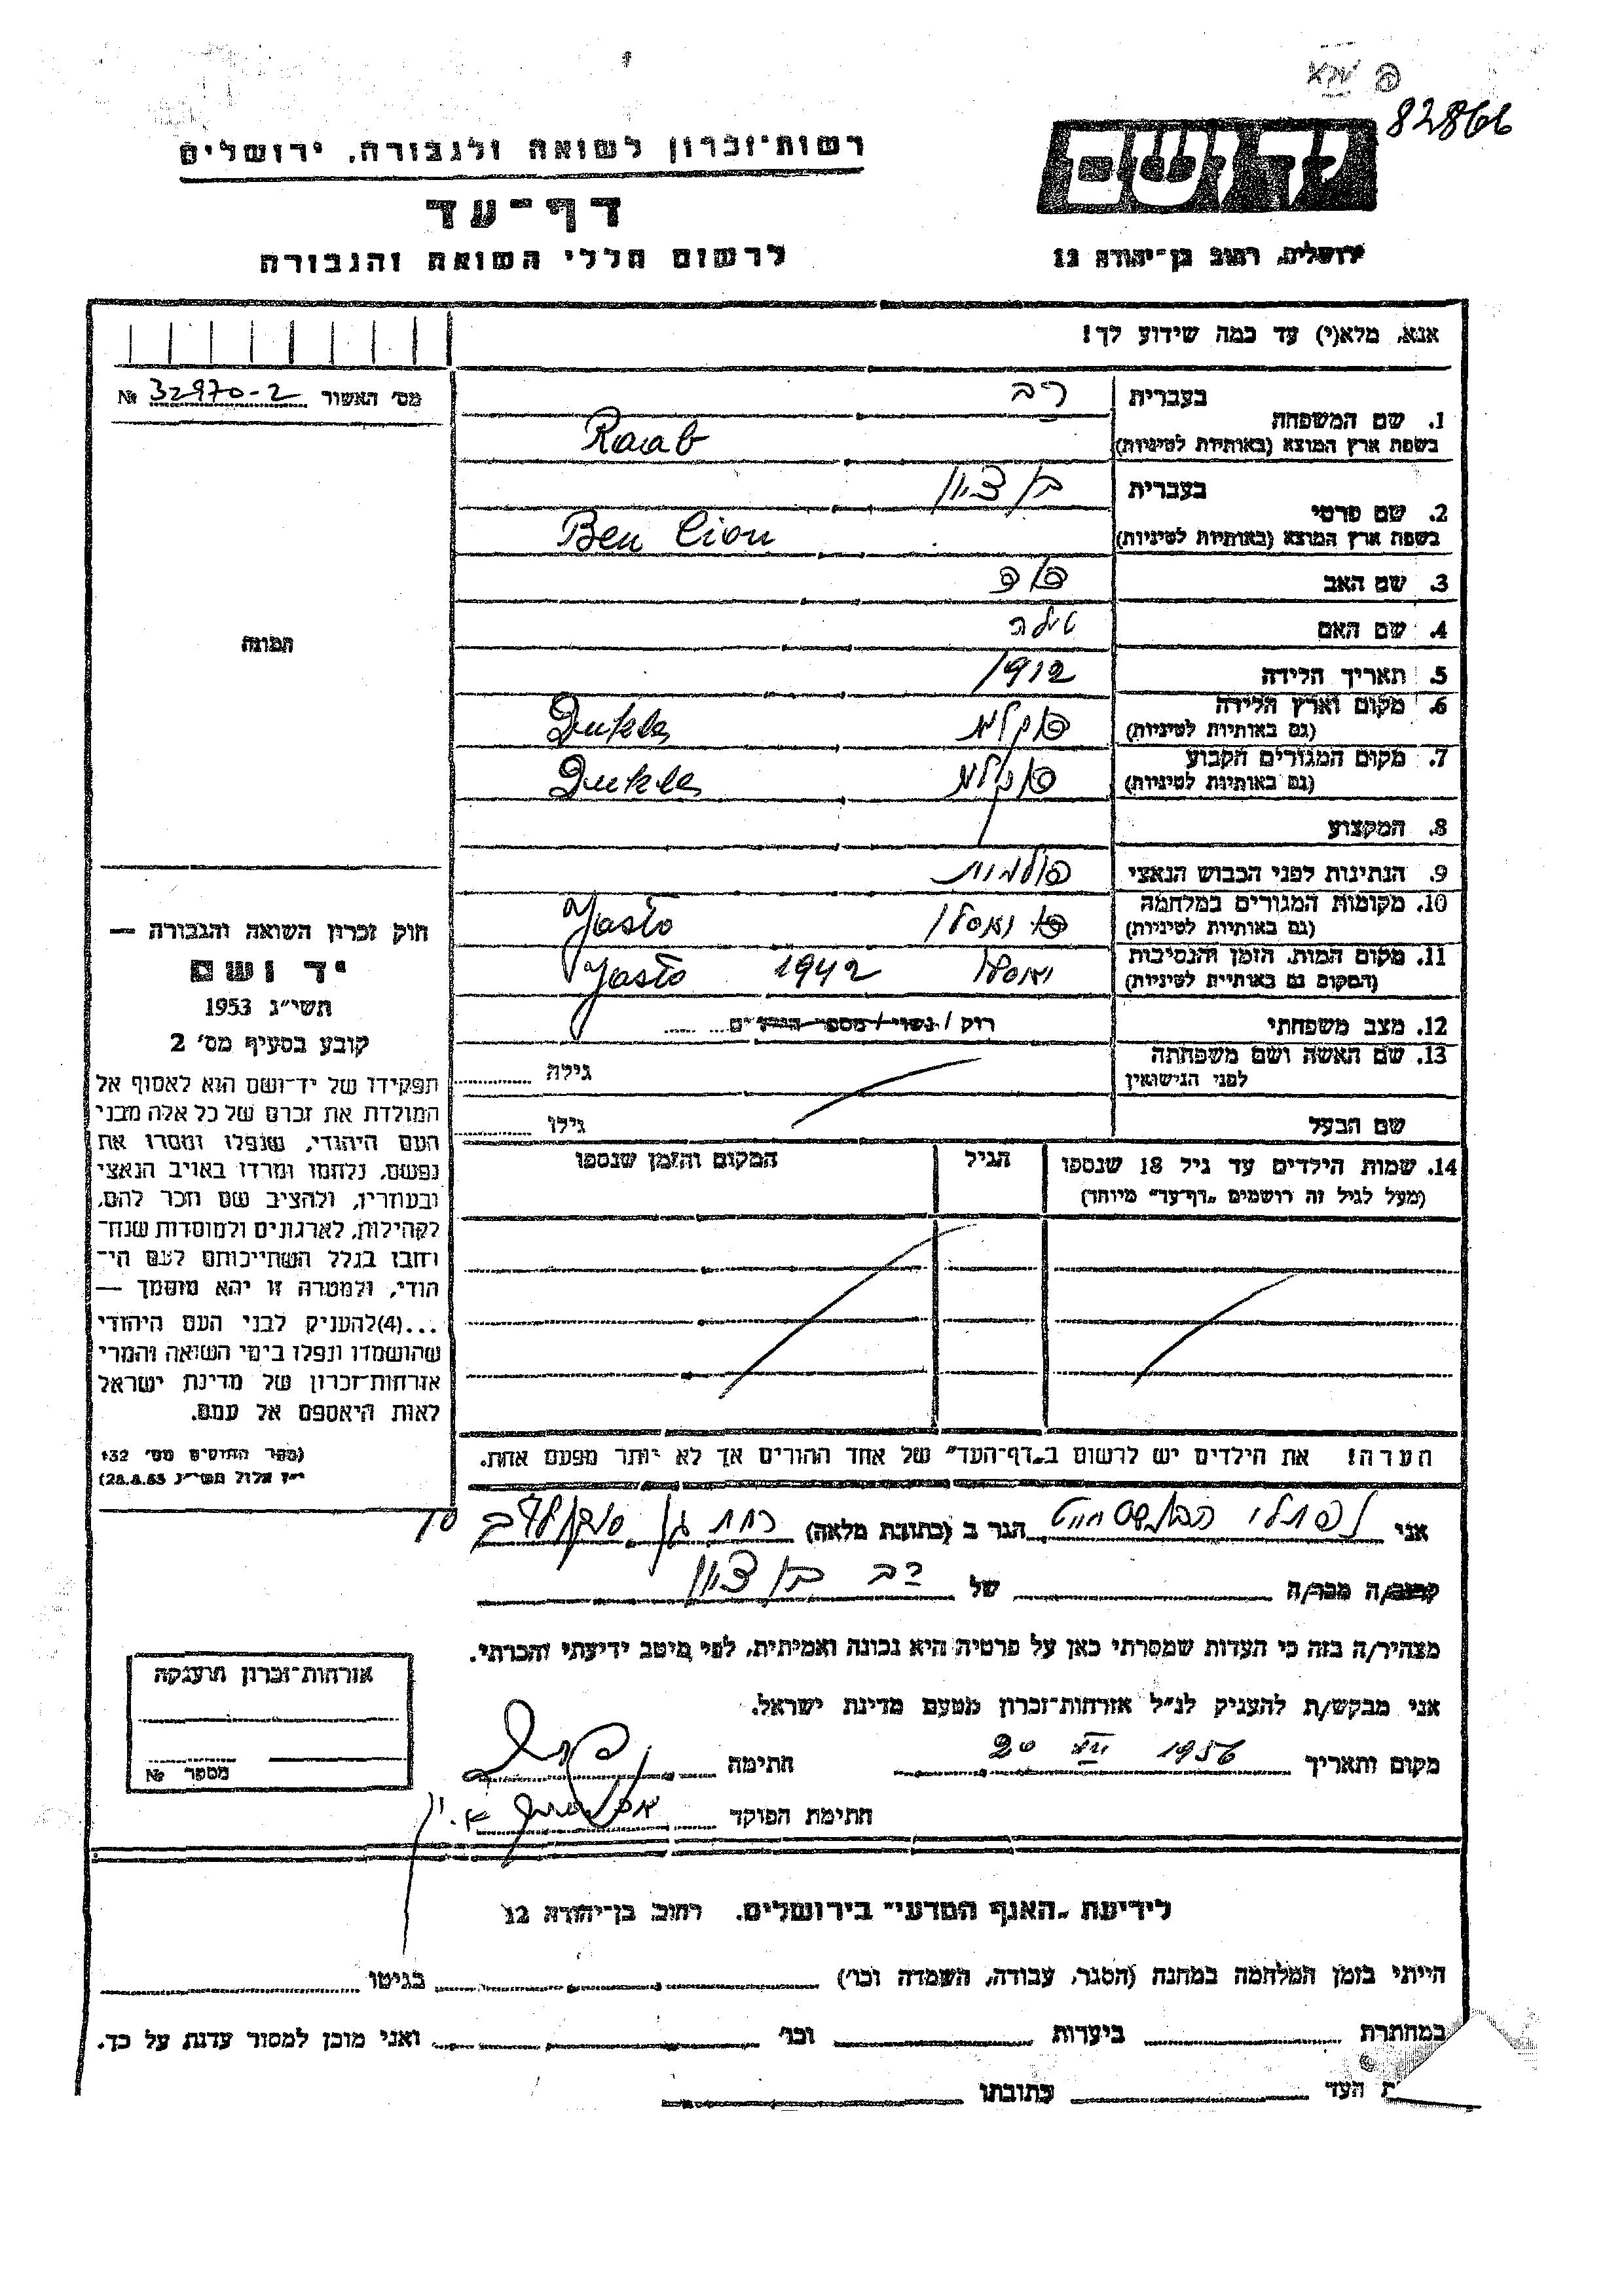 82866
יד ושם
רשות־זכרון לשואה ולגבורה, ירושלים
דף־עד
לרשום חללי השואה והגבורה
ירושלים, רחוב בן־יהודה 12
אנא, מלא(י) עד כמה שידוע לך!
מס׳ האשור 32970-2 №
1. שם המשפחה
בעברית רב
בשפת ארץ המוצא (באותיות לטיניות) Raab
2. שם פרטי
בעברית בן ציון
בשפת ארץ המוצא (באותיות לטיניות) Ben Cion
3. שם האב
4. שם האם
5. תאריך הלידה 1912
6. מקום וארץ הלידה
(גם באותיות לטיניות) דוקלא Dukla
7. מקום המגורים הקבוע
(גם באותיות לטיניות) דוקלא Dukla
8. המקצוע
9. הנתינות לפני הכבוש הנאצי פולנית
10. מקומות המגורים במלחמה
(גם באותיות לטיניות) יאסלו Jasło
11. מקום המות, הזמן והנסיבות
(המקום גם באותיות לטיניות) יאסלו 1942 Jasło
12. מצב משפחתי רוק / נשוי / מספר הילדים
13. שם האשה ושם משפחתה
לפני הנישואין
גילה
שם הבעל
גילו
14. שמות הילדים עד גיל 18 שנספו
(מעל לגיל זה רושמים „דף־עד״ מיוחד)
הגיל
המקום והזמן שנספו
הערה! את הילדים יש לרשום ב„דף־העד״ של אחד ההורים אך לא יותר מפעם אחת.
התמונה
חוק זכרון השואה והגבורה —
יד ושם
תשי״ג 1953
קובע בסעיף מס׳ 2
תפקידו של יד־ושם הוא לאסוף אל
המולדת את זכרם של כל אלה מבני
העם היהודי, שנפלו ומסרו את
נפשם, נלחמו ומרדו באויב הנאצי
ובעוזריו, ולהציב שם וזכר להם,
לקהילות, לארגונים ולמוסדות שנח־
רחבו בגלל השתייכותם לעם הי־
הודי, ולמטרה זו יהא מוסמך —
...(4)להעניק לבני העם היהודי
שהושמדו ונפלו בימי השואה והמרי
אזרחות־זכרון של מדינת ישראל
לאות היאספם אל עמם.
(ספר החוקים מס׳ 132
י״ז אלול תשי״ג 28.8.53)
אני נפתלי הגר ב (כתובת מלאה) רמת גן
קרוב/ה מכר/ה של רב בן ציון
מצהיר/ה בזה כי העדות שמסרתי כאן על פרטיה היא נכונה ואמיתית, לפי מיטב ידיעתי והכרתי.
אני מבקש/ת להעניק לנ״ל אזרחות־זכרון מטעם מדינת ישראל.
מקום ותאריך 20 VII 1956 חתימה
חתימת הפוקד
אזרחות־זכרון הוענקה
מספר №
לידיעת „האגף המדעי״ בירושלים, רחוב בן־יהודה 12
הייתי בזמן המלחמה במחנה (הסגר, עבודה, השמדה וכו׳) בגיטו
במחתרת ביערות וכו׳ ואני מוכן למסור עדות על כך.
ת העד כתובתו